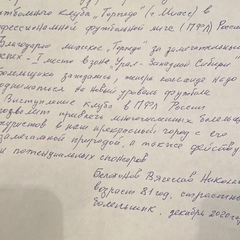 футбольного клуба "Торпедо" (г. Миасс) в
профессиональной футбольной лиге (ПФЛ) России
Благодарю миасск. "Торпедо" за замечательный
успех - I место в зоне "Урал - Западная Сибирь"
болельщики заждались, теперь команде надо
подниматься на новый уровень футбола
Выступление клуба в ПФЛ России
позволит привлечь многочисленных болельщ.
туристов в наш прекрасный город с его
замечательной природой, а также действу
и потенциальных спонсоров
Вячеслав Николае
возраст 81 год, страстный
болельщик, декабрь 2020 год